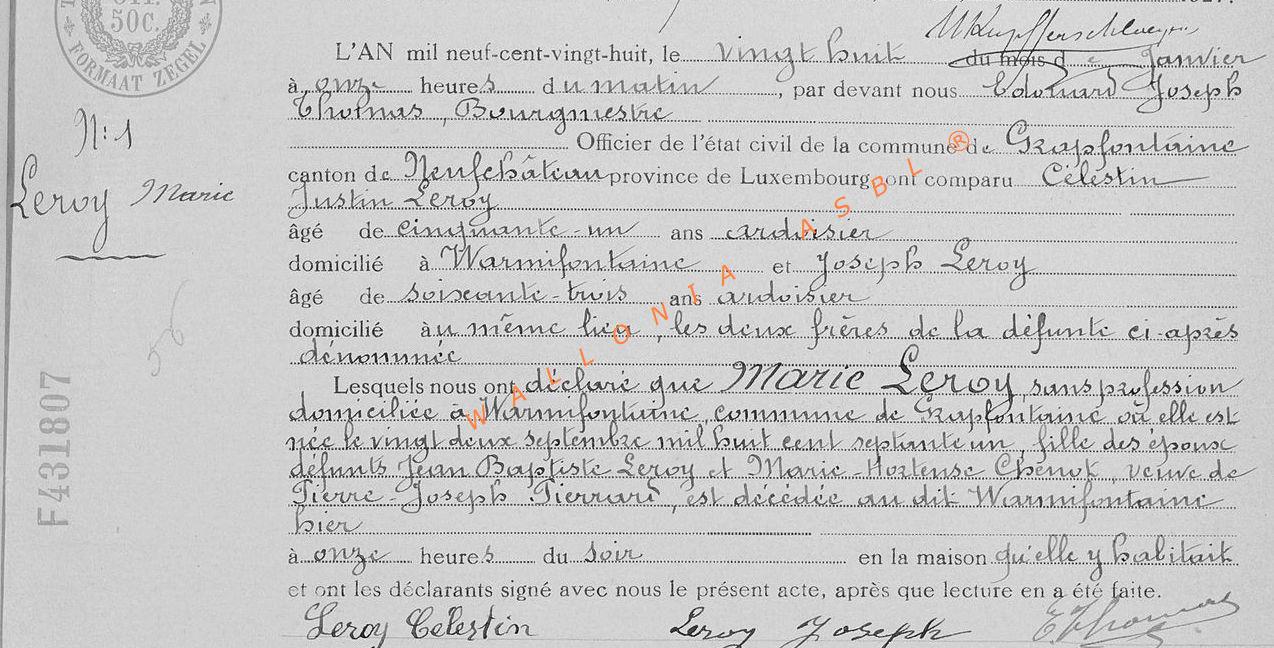 50C.
FORMAAT ZEGEL
L'AN mil neuf-cent-vingt-huit, le vingt huit du mois de Janvier
à onze heures du matin, par devant nous Edouard Joseph
Thomas, Bourgmestre
Officier de l'état civil de la commune de Grapfontaine
N: 1
canton de Neufchâteau province de Luxembourg ont comparu Célestin
Leroy Marie
Justin Leroy
âgé de cinquante-un ans ardoisier
domicilié à Warmifontaine et Joseph Leroy
âgé de soixante-trois ans ardoisier
domicilié au même lieu, les deux frères de la défunte ci-après
dénommée
Lesquels nous ont déclaré que Marie Leroy, sans profession
domiciliée à Warmifontaine, commune de Grapfontaine où elle est
née le vingt deux septembre mil huit cent septante un, fille des époux
défunts Jean Baptiste Leroy et Marie-Hortense Chenot, veuve de
Pierre-Joseph Pierrard, est décédée au dit Warmifontaine
hier
à onze heures du soir en la maison qu'elle y habitait
et ont les déclarants signé avec nous le présent acte, après que lecture en a été faite.
Leroy Celestin Leroy Joseph EJThomas
F431807
WALLONIA ASBL ®